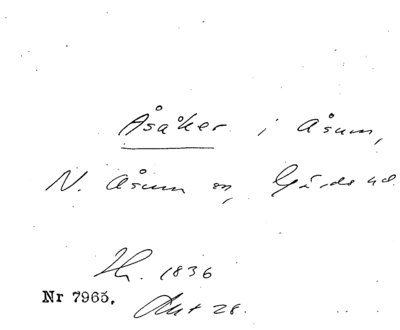 Åsåker i Åsum,
N. Åsum sn, Gärds hd.
Hr. 1836
Nr 7965. Akt 28.